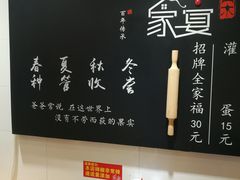 百年传承
家宴
春种 夏管 秋收 冬尝
爸爸常说，在这世上
没有不劳而获的果实
招牌全家福30元
灌蛋15元